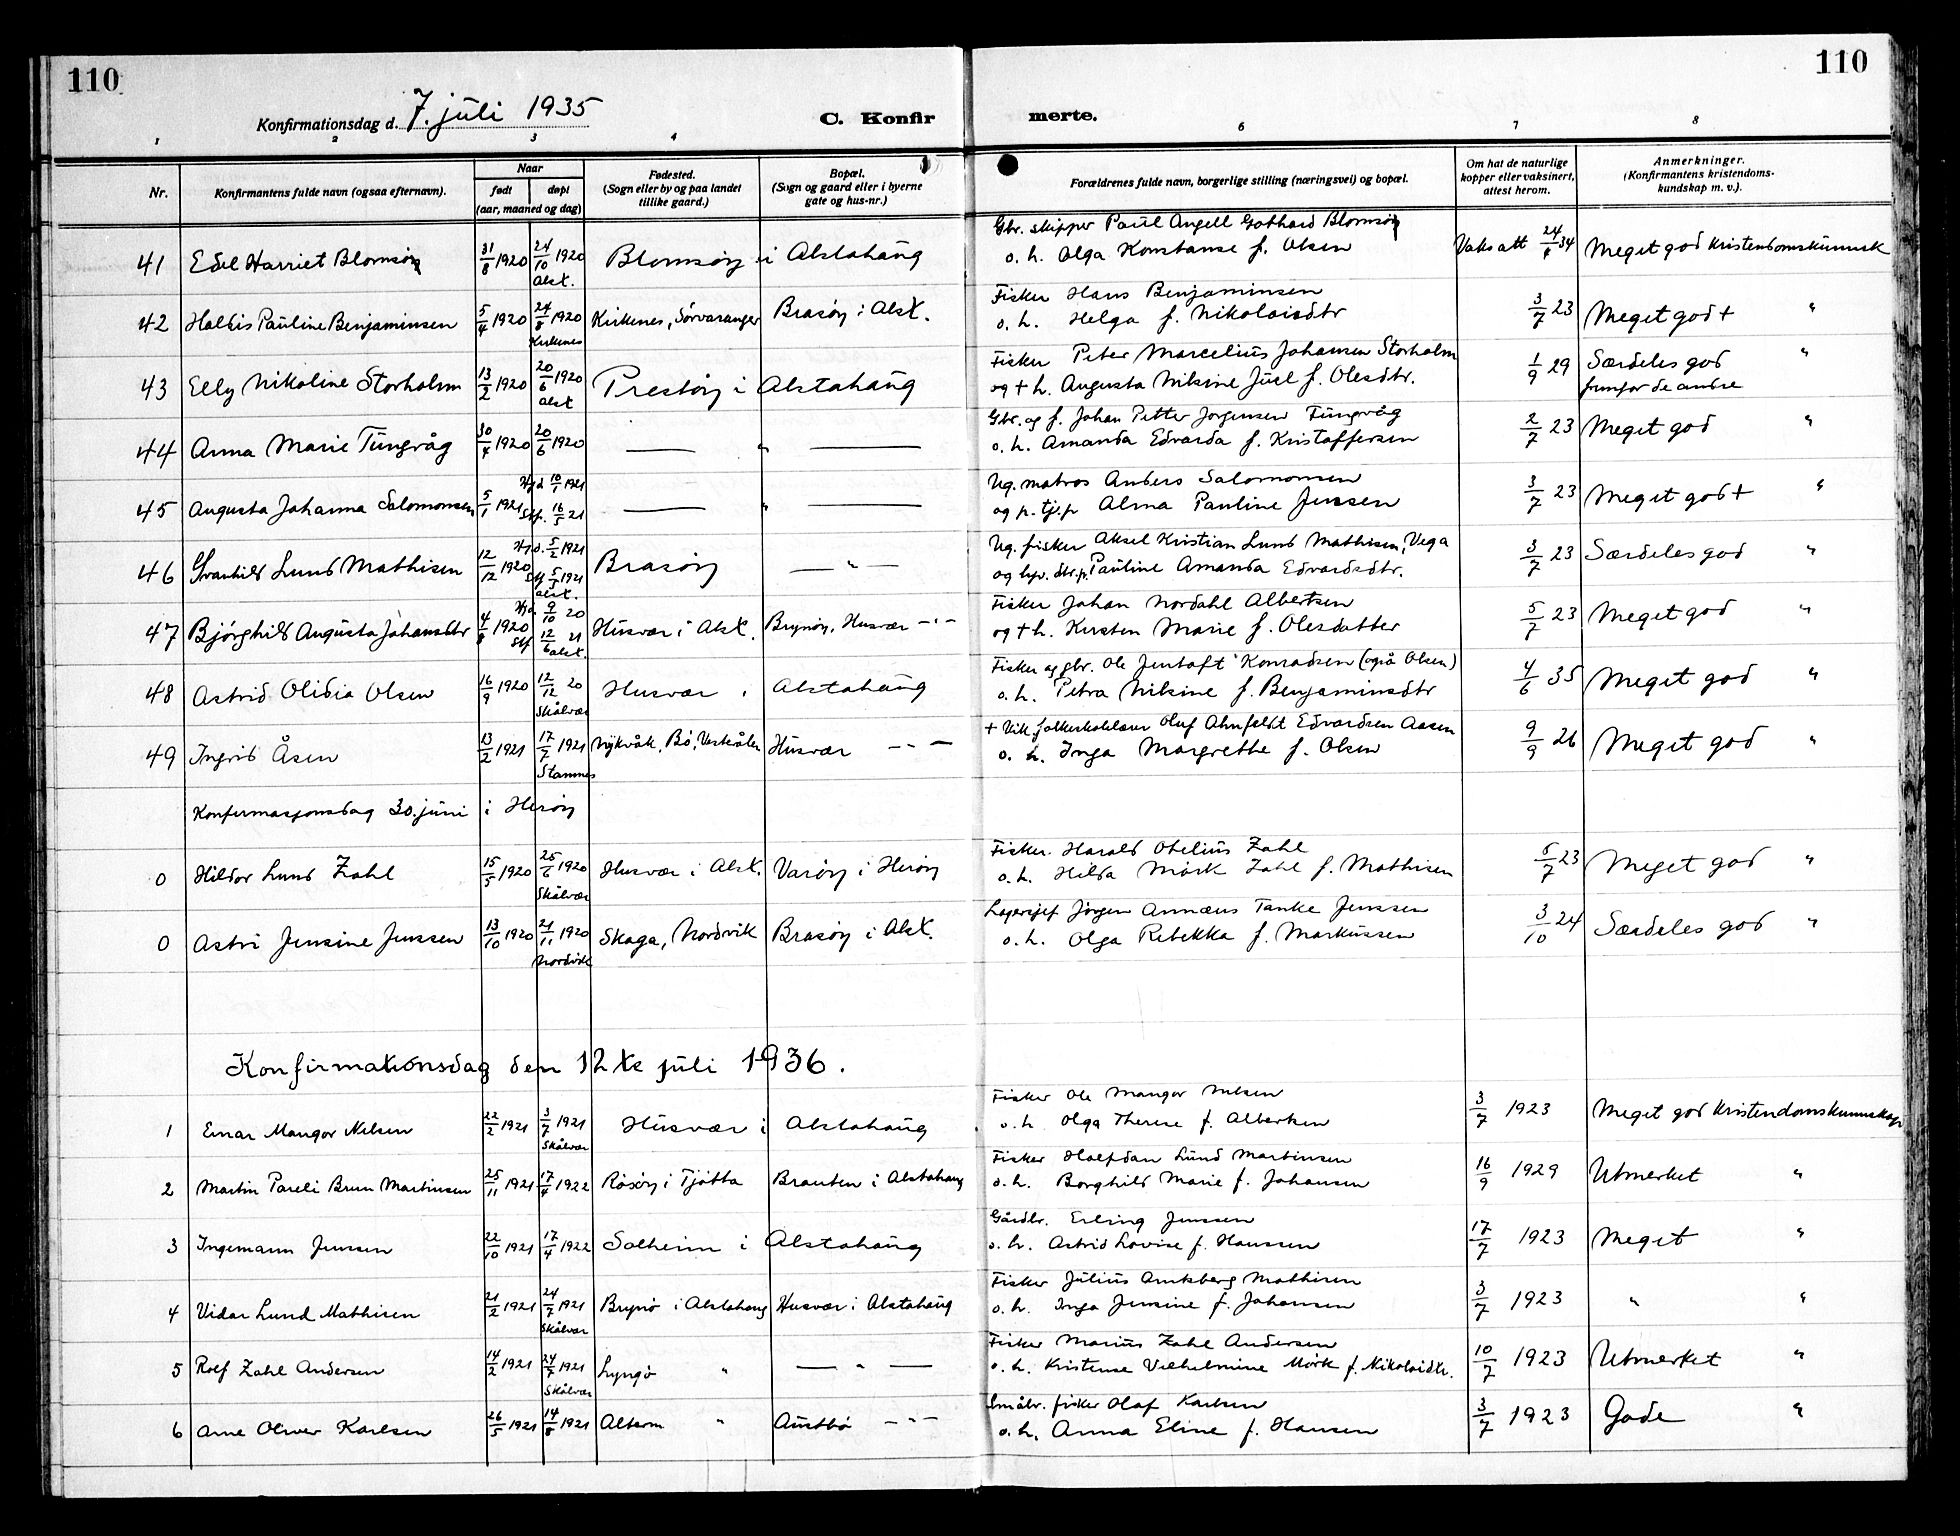 110
110
Konfirmationsdag d. 7. juli 1935
C. Konfir
merte.
1 2 3 4 6 7 8
Nr.
Konfirmantens fulde navn (ogsaa efternavn).
Naar
født
døpt
(aar, maaned og dag)
Fødested.
(Sogn eller by og paa landet
tillike gaard.)
Bopæl.
(Sogn og gaard eller i byerne
gate og hus-nr.)
Forældrenes fulde navn, borgerlige stilling (næringsvei) og bopæl.
Om hat de naturlige
kopper eller vaksinert,
attest herom.
Anmerkninger.
(Konfirmantens kristendoms-
kundskap m. v.).
Gbr. skipper Paul Angell Gotthard Blomsöy
41 Edel Harriet Blomsöy 31/8 1920 24/10 1920 Blomsöy i Alstahaug o. h. Olga Konstanse f. Olsen Vaks att 24/4 34 Meget god Kristendomskunnsk
Alst.
Fisker Hans Benjaminsen
42 Haldis Pauline Benjaminsen 5/4 1920 24/8 1920 Kirkenes, Sörvaranger Brasöy i Alst. o. h. Helga f. Nikolaisdtr 3/7 23 Meget god + "
Kirkenes
Fisker Peter Marcelius Johansen Storholm
43 Elly Nikoline Storholm 13/2 1920 20/6 1920 Prestöy i Alstahaug og + h. Augusta Nikine Juel f. Olesdtr. 1/9 29 Særdeles god "
Alst
fremfor de andre
Gbr. og f. Johan Petter Jorgensen Tungvåg
44 Anna Marie Tungvåg 30/4 1920 20/6 1920 — " — o. h. Amanda Edvarda f. Kristoffersen 2/7 23 Meget god "
Hjd 10/1 1921
Ug. matros Anders Salomonsen
45 Augusta Johanna Salomonsen 5/1 1921 Stf. 16/5 21 — " — og p. tj.p Alma Pauline Jenssen 3/7 23 Meget god + "
Hjd. 5/2 1921
Ug. fisker Aksel Kristian Lund Mathisen, Vega
46 Svanhild Lund Mathisen 12/12 1920 Stf 5/5 1921 Brasöy — " — og Pauline Amanda Edvardsdtr. 3/7 23 Særdeles god "
Alst.
Hjd. 9/10 20
Fisker Johan Nordahl Albertsen
47 Björghild Augusta Johansdtr 4/8 1920 Stf 12/6 21 Husvær i Alst. Brynöy, Husvær — " — og + h. Kirsten Marie f. Olesdatter 5/7 23 Meget god "
Alst.
Fisker og gbr. Ole Jentoft Konradsen (også Olsen)
48 Astrid Olidia Olsen 16/9 1920 12/12 20 Husvær i Alstahaug o. h. Petra Nikine f. Benjaminsdtr 4/6 35 Meget god "
Skålvær
+ Vik. folkeskolelærer Oluf Ahnfeldt Edvardsen Aasen
49 Ingrid Åsen 13/2 1921 17/7 1921 Nykvåk, Bö, Vesterålen Husvær — " — o. h. Inga Margrethe f. Olsen 9/9 26 Meget god "
Stamnes
Konfirmasjonsdag 30. juni i Heröy
Fisker. Harald Otelius Zahl
0 Hildor Lund Zahl 15/5 1920 25/6 1920 Husvær i Alst. Varöy i Heröy o. h. Hilda Mörk Zahl f. Mathisen 5/7 23 Meget god "
Skålvær
Lagersjef Jörgen Annæus Tanke Jenssen
0 Astri Jensine Jenssen 13/10 1920 21/11 1920 Skaga, Nordvik Brasöy i Alst. o. h. Olga Rebekka f. Markussen 3/10 24 Særdeles god "
Nordvik
Konfirmationsdag den 12te juli 1936.
Fisker Ole Mangor Nilsen
1 Einar Mangor Nilsen 22/2 1921 3/7 1921 Husvær i Alstahaug o. h Olga Therese f. Albertsen 3/7 1923 Meget god Kristendomskunnskap
Skålvær
Fisker Halfdan Lund Martinsen
2 Martin Pareli Brun Martinsen 25/11 1921 17/4 1922 Rösöy i Tjötta Brauten i Alstahaug o. h. Borghild Marie f. Johansen 16/9 1929 Utmerket "
Gårdbr. Erling Jenssen
3 Ingemann Jenssen 22/10 1921 17/4 1922 Solheim i Alstahaug o. h. Astrid Lovise f. Hanssen 17/7 1923 Meget "
Fisker Julius Amtsberg Mathisen
4 Vidar Lund Mathisen 21/2 1921 24/7 1921 Brynö i Alstahaug Husvær i Alstahaug o. h. Inga Jensine f. Johansen 3/7 1923 " "
Skålvær
Fisker Marius Zahl Andersen
5 Rolf Zahl Andersen 14/2 1921 24/7 1921 Lyngö " — " — o. h. Kristense Vilhelmine Mörk f. Nikolaidtr. 10/7 1923 Utmerket "
Skålvær
Småbr. fisker Olaf Karlsen
6 Arne Oliver Karlsen 26/5 1921 14/8 1921 Altern " Austbö — " — o. h. Anna Eline f. Hansen 3/7 1923 Gode "